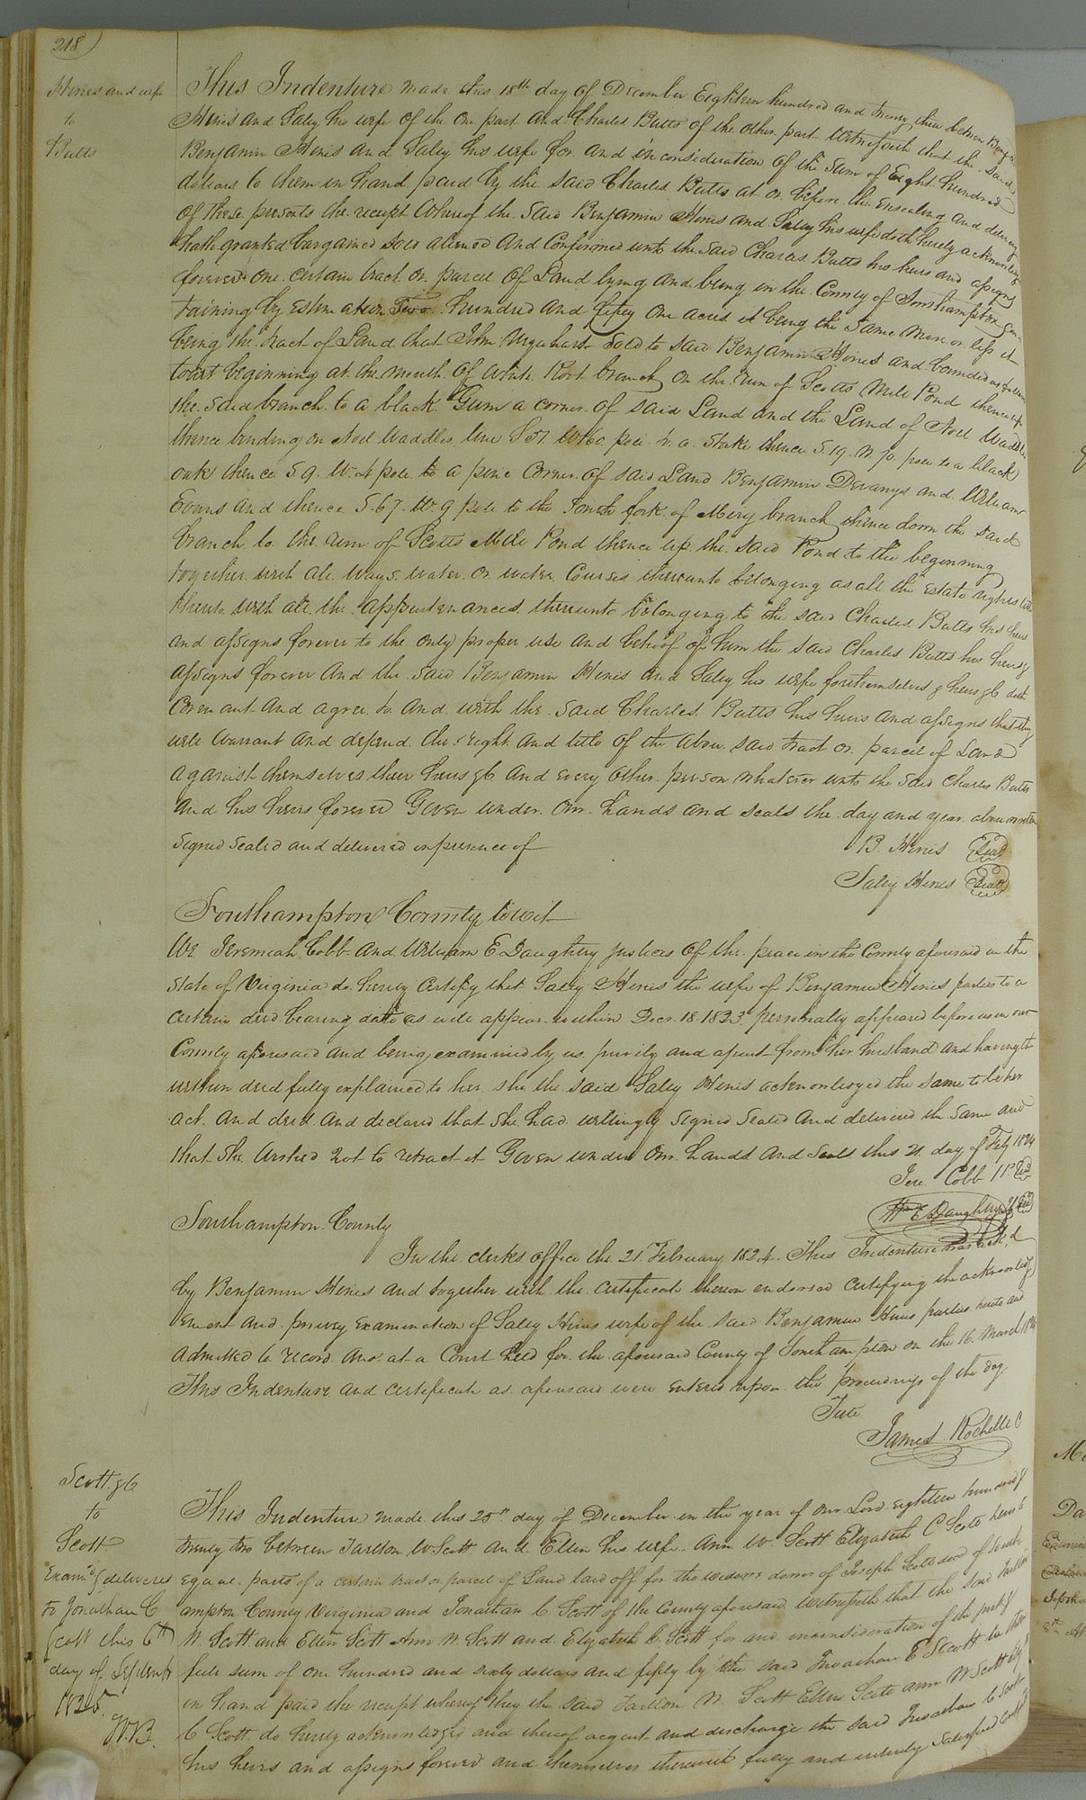 218
Hines and wife
to
Butts
This Indenture made this 18th day of December Eighteen hundred and twenty three between Benjn
Hines and Saley his wife of the one part and Charles Butts of the other part witnesseth that the said
Benjamin Hines and Saley his wife for and in consideration of the sum of Eight hundred
dollars to them in hand paid by the said Charles Butts at or before the ensealing and delivery
of these presents the receipt whereof the said Benjamin Hines and Saley his wife doth hereby acknowledge
hath granted bargained sold aliened and confirmed unto the said Charles Butts his heirs and assigns
forever one certain tract or parcel of Land lying and being in the County of Southampton Con
taining by estimation Two hundred and fifty one acres it being the same more or less it
being the tract of Land that John Urquhart sold to said Benjamin Hines and bounded as follows
towit beginning at the mouth of White Root branch on the run of Scotts Mill Pond thence up
the said branch to a black Gum a corner of said Land and the Land of Noel Waddle
thence binding on Noel Waddles line S 57 W 60 pole to a stake thence S. 19. W 70. pole to a black
oak thence S 9. W. 4 pole to a pine corner of said Land Benjamin Devanys and William
Evans and thence S. 67. W. 9 pole to the South fork of Miery branch thence down the said
branch to the run of Scotts Mill Pond thence up the said Pond to the beginning
together with all ways water or water courses thereunto belonging as all the estate rights title
thereto with all the appurtenances thereunto belonging to the said Charles Butts his heirs
and assigns forever to the only proper use and behoof of him the said Charles Butts his heirs &
assigns forever And the said Benjamin Hines and Saley his wife for themselves & heirs &c doth
Covenant and agree to and with the said Charles Butts his heirs and assigns that they
will warrant and defend the right and title of the above said tract or parcel of Land
against themselves their heirs &c and every other person whatever unto the said Charles Butts
and his heirs forever Given under our hands and seals the day and year above written
Signed sealed and delivered in presence of B. Hines Seal
Saley Hines Seal
Southampton County towit
We Jeremiah Cobb and William E Daughtry justices of the peace in the County aforesaid in the
State of Virginia do hereby certify that Saley Hines the wife of Benjamin Hines parties to a
certain deed bearing date as will appear within Decr. 18. 1823 personally appeared before us in our
County aforesaid and being examined by us privily and apart from her husband and having the
within deed fully explained to her she the said Saley Hines acknowledged the same to be her
act and deed and declared that she had willingly signed sealed and delivered the same and
that she wished not to retract it Given under our hands and seals this 21 day of Feby 1824
Jere Cobb Seal
Wm E Daughtry Seal
Southampton County
In the clerks office the 21 February 1824. This Indenture was ack'd
by Benjamin Hines and together with the certificate thereon endorsed certifying the acknowledg
ement and privy examination of Saley Hines wife of the said Benjamin Hines parties hereto and
admitted to record And at a Court held for the aforesaid County of Southampton on the 16 March 1824
This Indenture and certificate as aforesaid were entered upon the proceedings of the day
Teste
James Rochelle C
Scott &c
to
Scott
Examd & delivered
to Jonathan C
Scott this 6th
day of Septembr
1825.
W.B.
This Indenture made this 25th day of December in the year of our Lord eighteen hundred &
twenty two between Tarlton W Scott and Ellen his wife Ann W Scott Elizabeth C Scott
equal parts of a certain tract or parcel of Land laid off for the widows dower of Joseph Scott decd of South
ampton County Virginia and Jonathan C Scott of the County aforesaid witnesseth that the said Tarlton
W. Scott and Ellen Scott Ann W. Scott and Elizabeth C. Scott for and in consideration of the just &
full sum of one hundred and sixty dollars and fifty by the said Jonathan C Scott to them
in hand paid the receipt whereof they the said Tarlton W. Scott Ellen Scott Ann W Scott
C Scott do hereby acknowledge and thereof acquit and discharge the said Jonathan C Scott
his heirs and assigns forever and themselves therewith fully and entirely satisfied